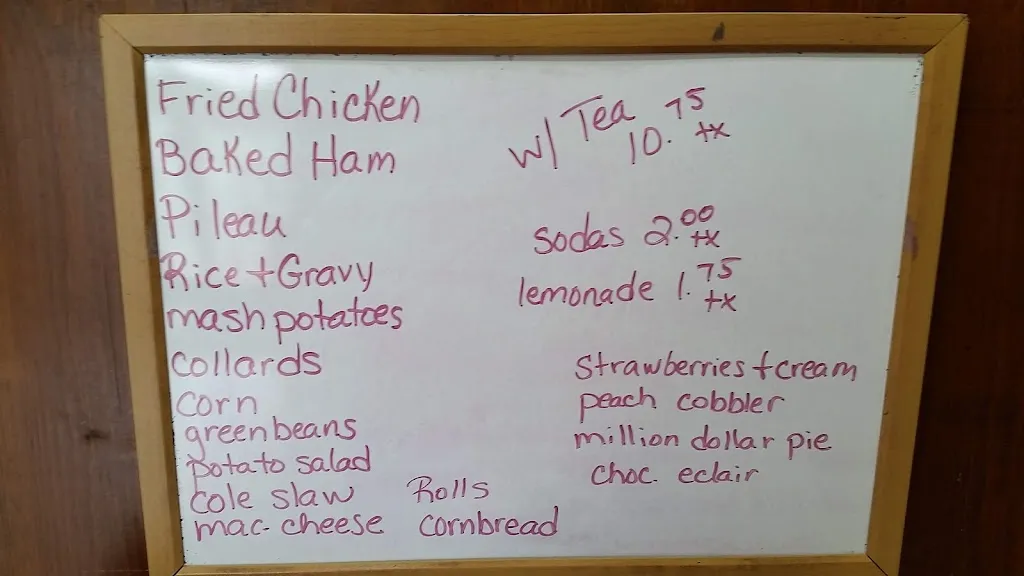 Fried Chicken
Baked Ham
Pileau
Rice + Gravy
mash potatoes
collards
corn
greenbeans
potato salad
cole slaw
mac-cheese
Rolls
cornbread
w/ Tea 10.75 tx
sodas 2.00 tx
lemonade 1.75 tx
Strawberries + cream
peach cobbler
million dollar pie
choc. eclair